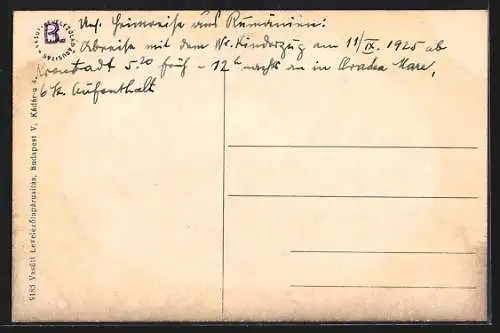 Uns. Heimreise aus Rumänien:
Abreise mit dem Kinderzug am 11/IX. 1925 ab
Kronstadt 5.20 früh - 12h nachts an in Oradea Mare,
6 St. Aufenthalt
9185 Vasúti Levelezőlapárusítás, Budapest V, Kádár-u